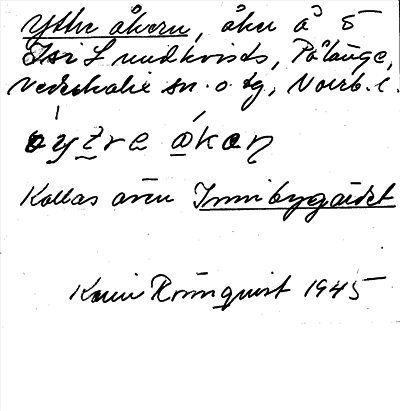 Yttre åkern, åker å 5
Isr L undkvists, Pålänge,
Nederkalix sn. o tg, Norrb. l.
yt̠re åkɑn
Kallas även Innibygärdet
Karin Rönnquist 1945